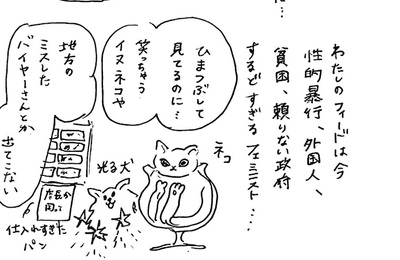 た…
わたしのフィードは今
性的暴行、外国人、
貧困、頼りない政府
するどすぎるフェミニスト……
ひまつぶしで
見てるのに…
笑っちゃう
イヌネコや
地方の
ミスした
バイヤーさんとか
出てこない
ネコ
光る犬
店長が
困って
仕入れすぎた
パン